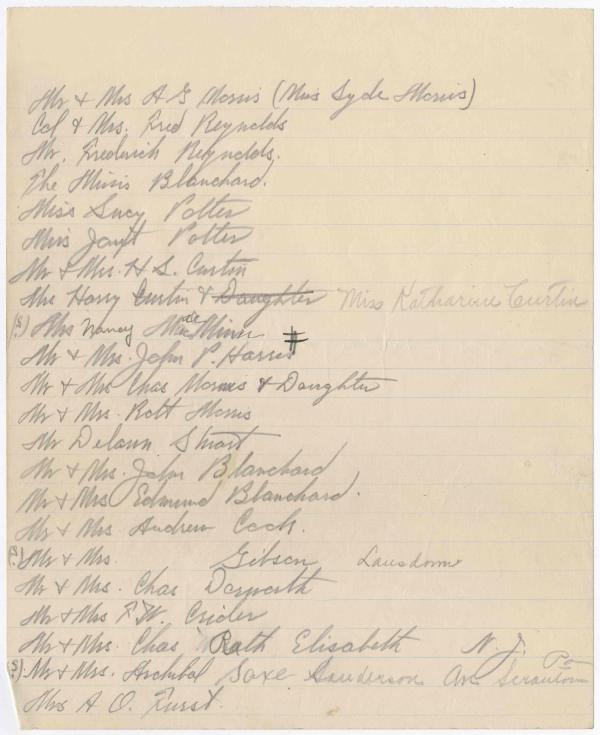 Mr & Mrs A G Morris (Miss Lyde Morris)
Col & Mrs. Fred Reynolds
Mr. Frederick Reynolds.
The Misses Blanchard.
Miss Lucy Potter
Miss Potter
Mr & Mrs. H S. Curtin
Mrs Harry Curtin & Daughter Miss Katharine Curtin
(S.) Mrs Nancy #
Mr & Mrs. John P. Harris
Mr & Mrs Chas Morris & Daughter
Mr & Mrs. Robt Morris
Mr Stuart
Mr & Mrs. John Blanchard
Mr & Mrs Edmund Blanchard.
Mr & Mrs Andrew Cook.
Mr & Mrs. Gibson Lansdowne
Mr & Mrs. Chas
Mr & Mrs F. W. Crider
Mr & Mrs. Chas Rath Elisabeth N. J.
Mr & Mrs. Archibal Saxe Sanderson Ave Scranton Pa
Mrs A O. Furst.